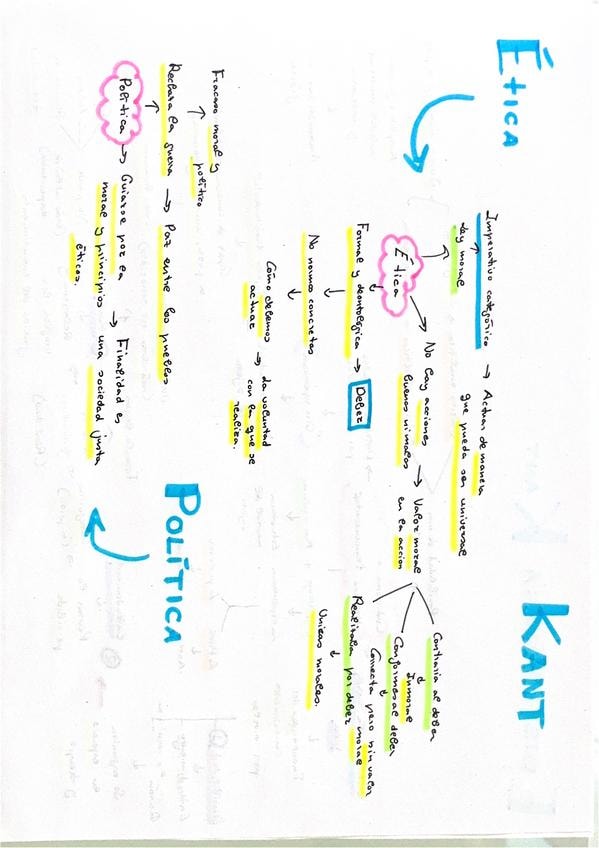 Ética
KANT
Imperativo categórico → Actuar de manera
que pueda ser universal
Ley moral
Ética
No hay acciones
buenas ni malas → Valor moral
en la acción
Contraria al deber
Inmoral
Conformes al deber
Correcta pero sin valor
moral
Realizada por deber
Unicas morales.
Formal y deontológica → Deber
No normas concretas
Cómo debemos
actuar → La voluntad
con la que se
realiza.
POLÍTICA
Fracaso moral y
político
Rechaza la guerra → Paz entre los pueblos
Política → Guiarse por la
moral y principios
éticos.
→ Finalidad es
una sociedad justa